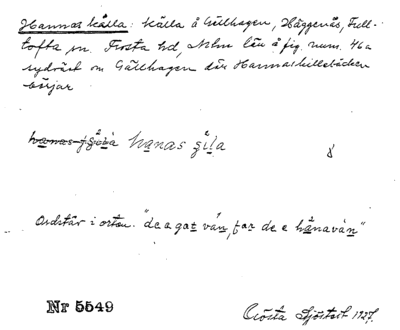 Hannas källa: källa å Gällhagen, Häggenäs, Full-
tofta sn. Frosta hd, Mlm län å fig. num. 46a
sydväst om Gällhagen där Hannaskillebäcken
börjar
hanas gila
Ordstäv i orten. "de e gat van, far de e hanavan"
Nr 5549
Gösta Sjöstedt 1927.